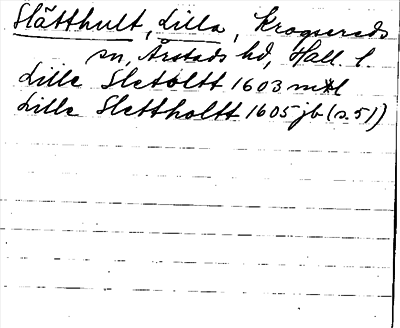 Slätthult, Lilla, Krogsereds
sn, Årstads hd, Hall. l.
Lille Sletoltt 1603 mtl
Lille Slettholtt 1605 jb (s. 51)